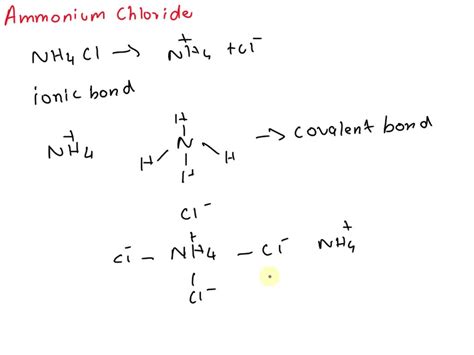 Ammonium Chloride
NH4 Cl → NH4+ + Cl-
ionic bond
NH4+
H
H N H → covalent bond
H
Cl-
Cl- — NH4+ — Cl- NH4+
Cl-